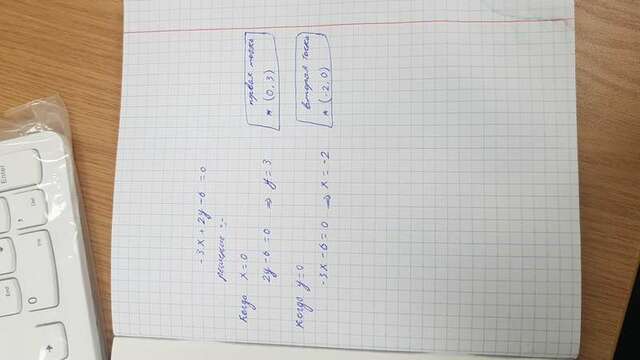 -3x + 2y - 6 = 0
решение :-
когда x = 0
2y - 6 = 0 → y = 3
первая точка
* (0, 3)
когда y = 0
-3x - 6 = 0 → x = -2
вторая точка
* (-2, 0)
Enter
Del
End
0